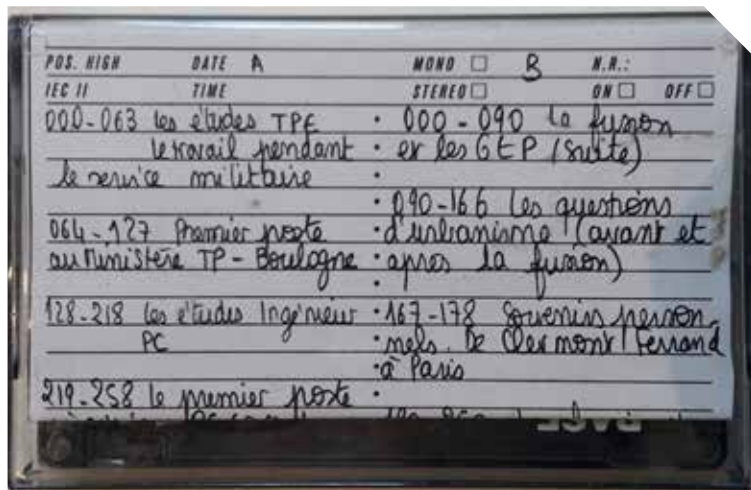 POS. HIGH DATE A MONO B N.R.:
IEC II TIME STEREO ON OFF
000-063 les études TPE
le travail pendant
le service militaire
064-127 Premier poste
au Ministère TP - Boulogne
128-218 les études Ingénieur
PC
219-258 le premier poste
• 000 - 090 la fusion
• et les GEP (suite)
• 090-166 les questions
• d'urbanisme (avant et
• après la fusion)
• 167-178 Souvenirs person
• nels. De Clermont Ferrand
• à Paris
BASF